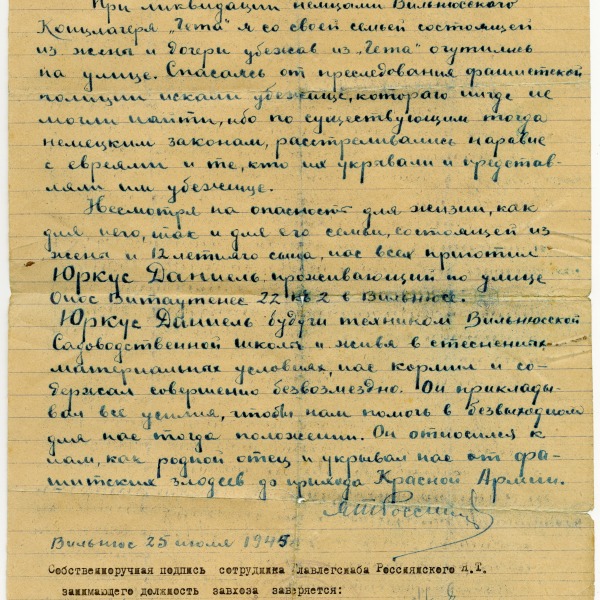 При ликвидации немцами Вильнюсского
Концлагеря „Гета" я со своей семьей состоящей
из жены и дочери убежав из „Гета" очутились
на улице. Спасаясь от преследования фашистской
полиции искали убежище, котораго нигде не
могли найти, ибо по существующим тогда
немецким законам, расстреливались наравне
с евреями и те, кто их укрывали и представ-
ляли им убежище.
Несмотря на опасность для жизни, как
для него, так и для его семьи, состоящей из
жены и 12 летняго сына, нас всех приютил
Юркус Даниель проживающий по улице
Онос Витаутенес 22 кв 2 в Вильнюсе.
Юркус Даниель будучи техником Вильнюсской
Садоводственной школы и живя в стесненных
материальных условиях, нас кормил и со-
держал совершенно безвозмездно. Он приклады-
вал все усилия, чтобы нам помочь в безвыходном
для нас тогда положении. Он относился к
нам, как родной отец и укрывал нас от фа-
шитских злодеев до прихода Красной Армии.
Вильнюс 25 июля 1945
Собственноручная подпись сотрудника Главлегснаба Россиянского Л.Т.
занимающего должность завхоза заверяется: